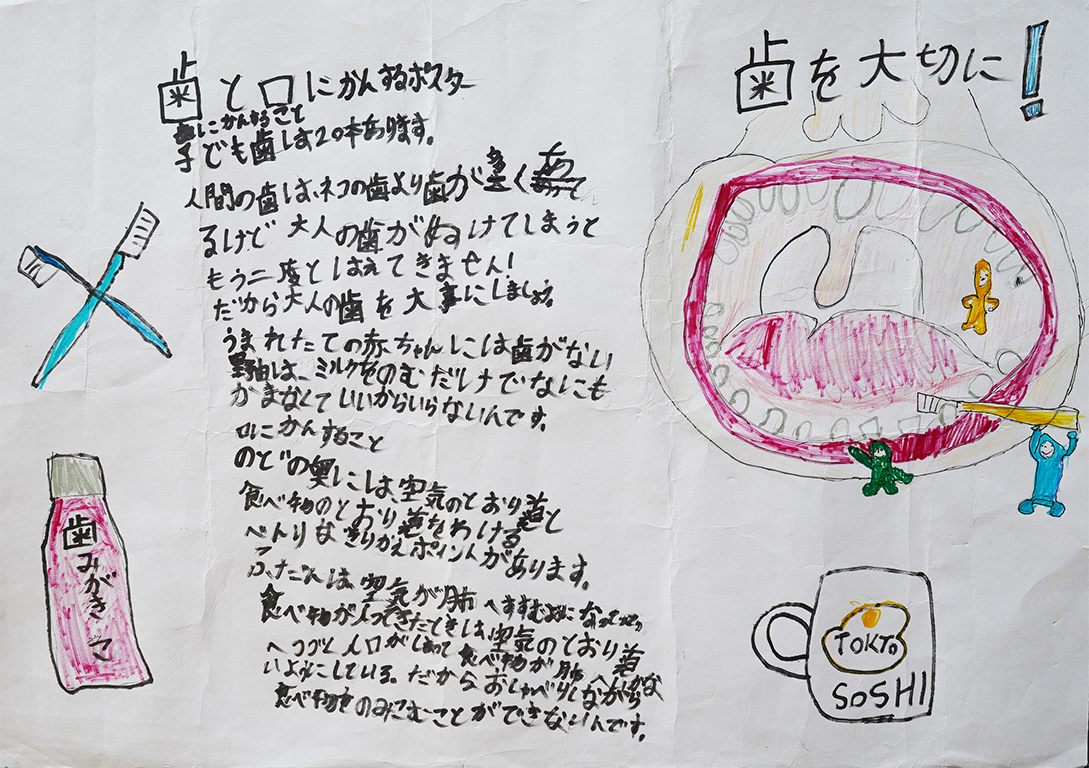 歯を大切に!
歯と口にかんするポスター
歯にかんすること
子ども歯は20本あります。
人間の歯は、ネコの歯より歯が多く
るけど 大人の歯がぬけてしまうと
もう二度とはえてきません!
だから大人の歯を大事にしましょう。
うまれたての赤ちゃんには歯がない
理由は、ミルクをのむだけでなにも
かまなくていいからいらないんです。
口にかんすること
のどの奥には、空気のとおり道と
食べ物のとおり道をわける
べんりなきりかえポイントがあります。
ふだんは空気が肺へすすむように
食べ物が入ってきたときは、空気のとおり道
へつづく入口がしまって食べ物が肺へ
いようにしている。だからおしゃべりしながら
食べ物をのみこむことができないんです。
歯みがきこ
TOKYO
SOSHI